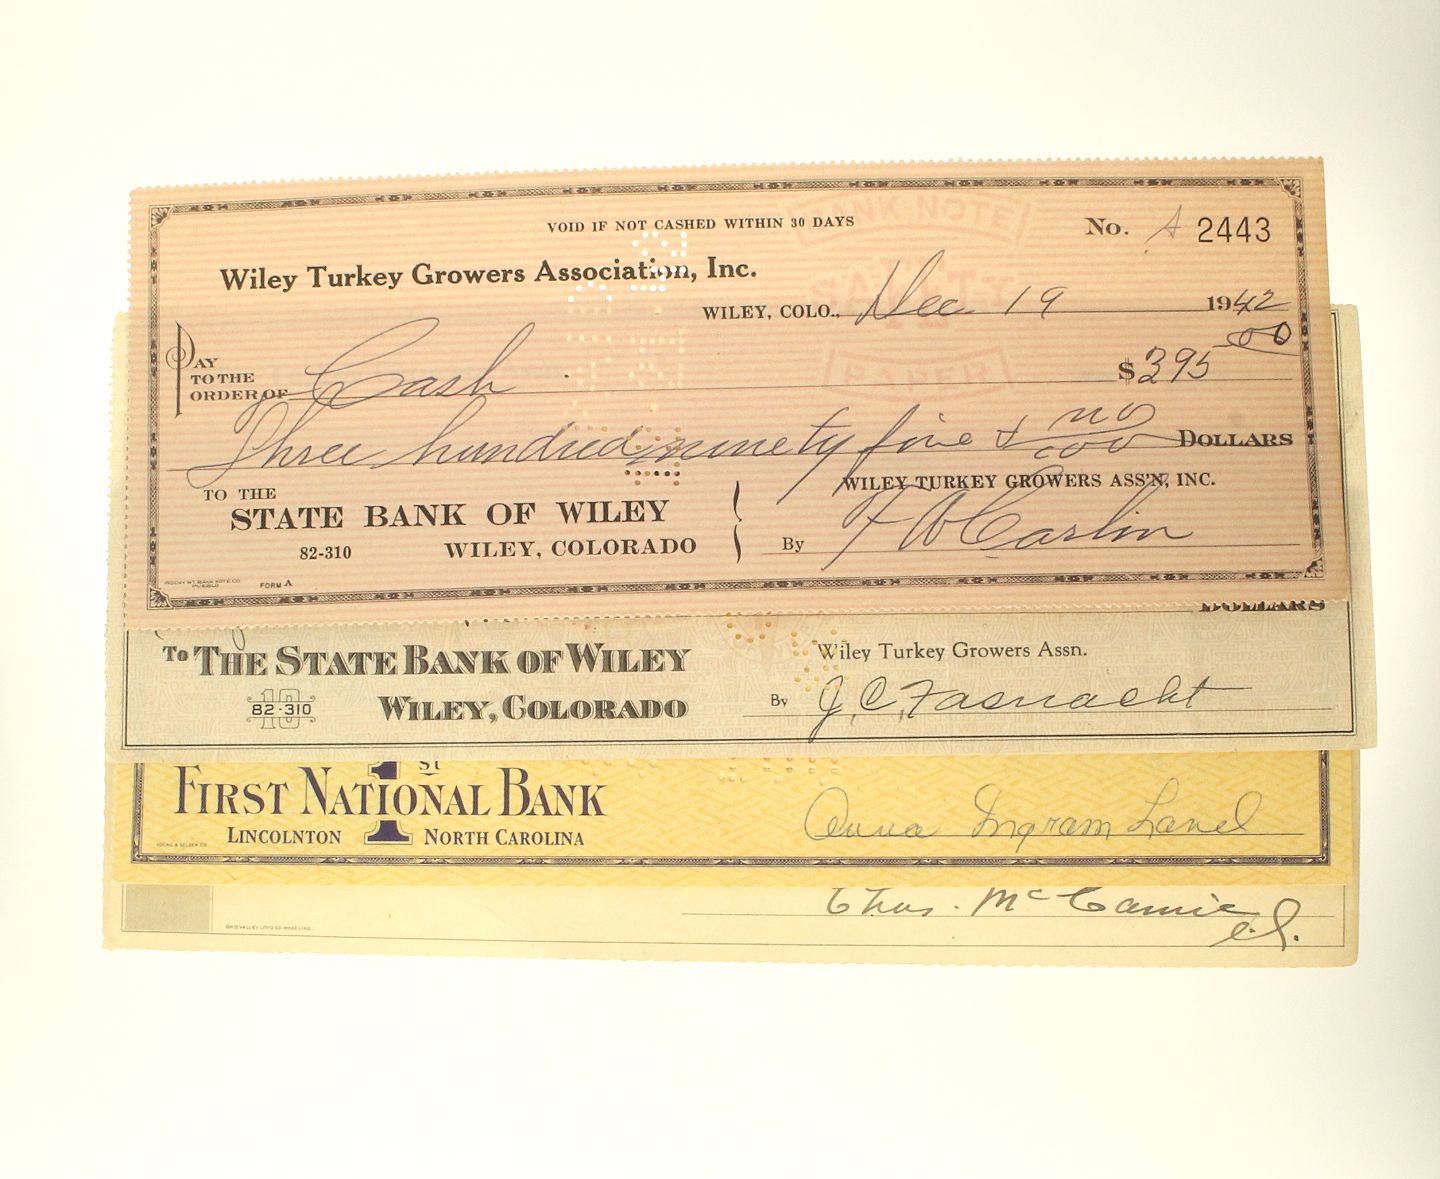 VOID IF NOT CASHED WITHIN 30 DAYS
No. A 2443
Wiley Turkey Growers Association, Inc.
WILEY, COLO., Dec 19 1942
PAY TO THE ORDER OF Cash $395 00
Three hundred ninety five & no/100 DOLLARS
BANK NOTE
SAFETY
PAPER
WILEY TURKEY GROWERS ASS'N, INC.
TO THE
STATE BANK OF WILEY
82-310 WILEY, COLORADO
By F W Carlin
ROCKY MT. BANK NOTE CO.
PUEBLO
FORM A
DOLLARS
To THE STATE BANK OF WILEY
Wiley Turkey Growers Assn.
82-310 WILEY, COLORADO
By J. C. Fasnacht
FIRST NATIONAL BANK
1ST
LINCOLNTON NORTH CAROLINA
Anna Ingram
YOUNG & SELDEN CO.
Chas. Mc
OHIO VALLEY LITHO CO. WHEELING